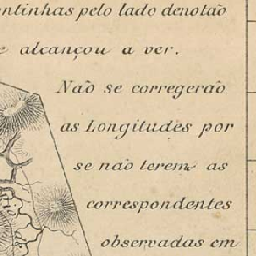 ntinhas pelo lado denotaõ
e alcançou a ver.
Naõ se corregeraõ
as Longitudes por
se naõ terem as
correspondentes
observadas em